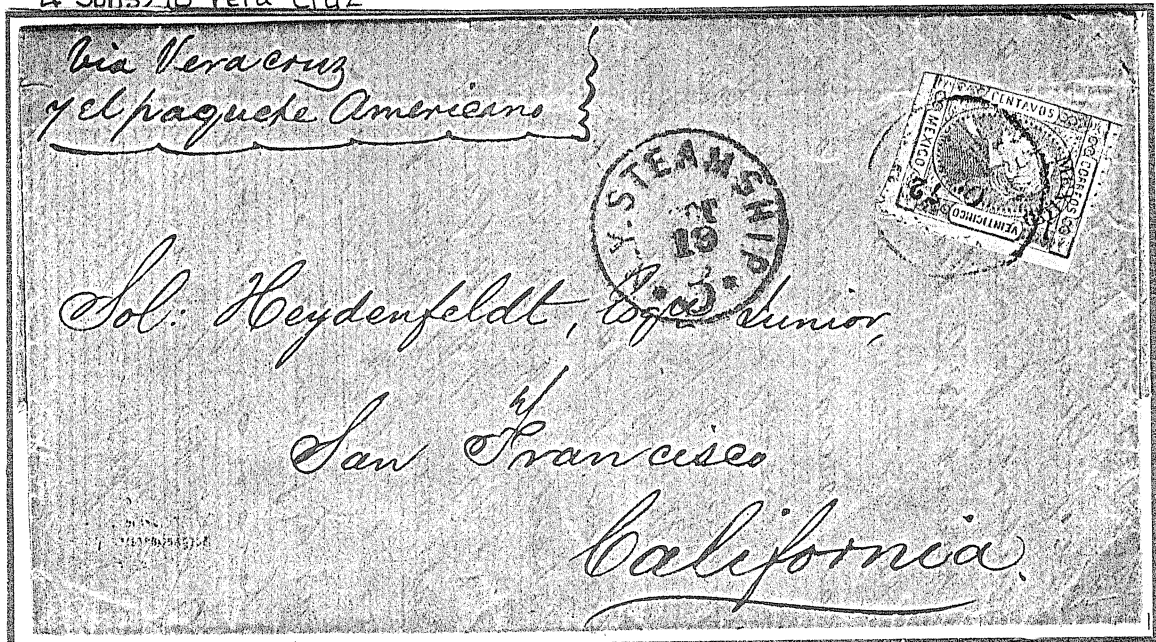 Vera Cruz
Via Veracruz
y el paquete Americano
N.Y. STEAMSHIP
19
MEXICO
CORREOS
CENTAVOS
VEINTICINCO
72
Sol: Heydenfeldt, Esqr. Junior,
San Francisco
California.